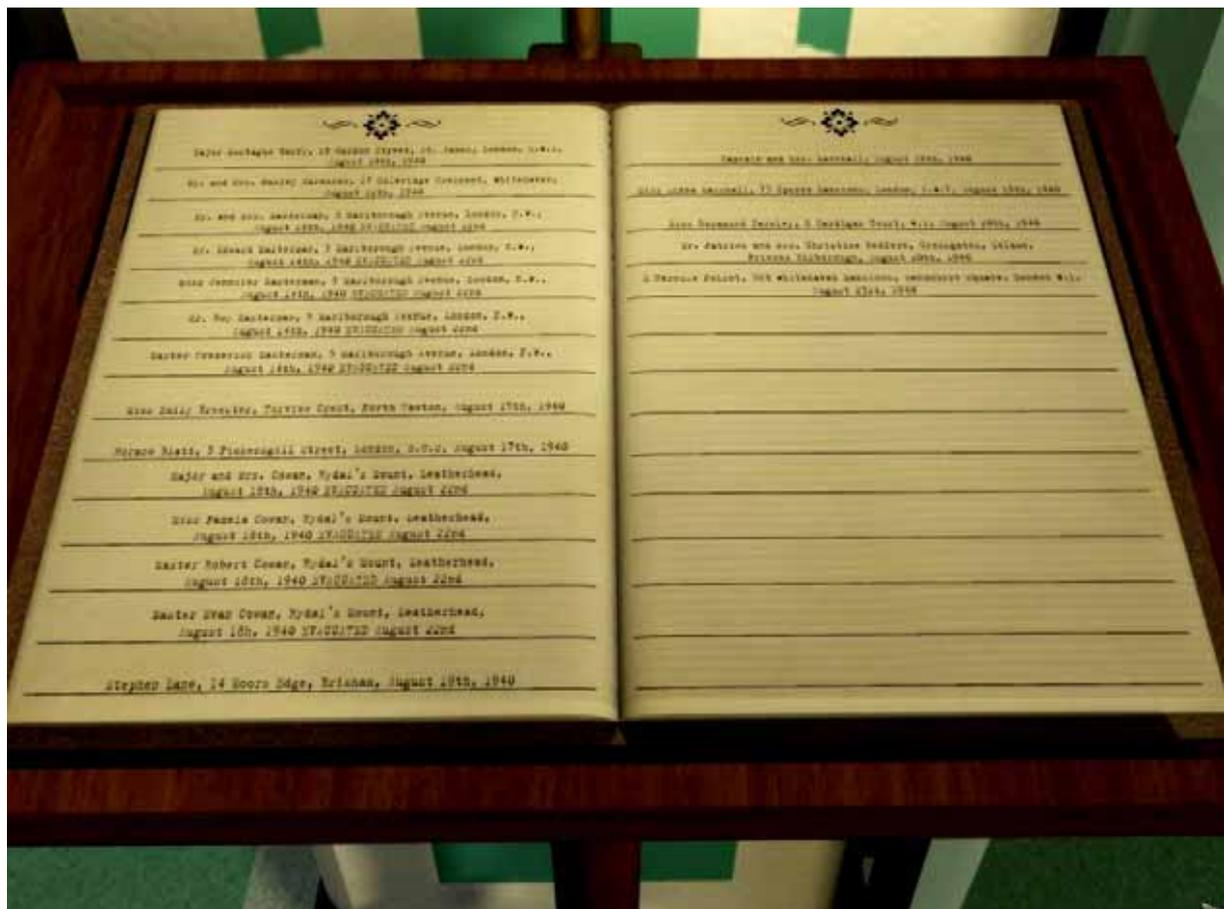 Major Barry, 18 Street, St. James, London, S.W.1,
August 1940
Mr. and Mrs. Gardener,
August 1940
Mr. and Mrs. Masterman, 5 Marlborough Avenue, London, N.W.,
August 14th, 1940 EVACUATED August 22nd
Mr. Edward Masterman, 5 Marlborough Avenue, London, N.W.,
August 14th, 1940 EVACUATED August 22nd
Miss Jennifer Masterman, 5 Marlborough Avenue, London, N.W.,
August 14th, 1940 EVACUATED August 22nd
Mr. Roy Masterman, 5 Marlborough Avenue, London, N.W.,
August 14th, 1940 EVACUATED August 22nd
Master Frederick Masterman, 5 Marlborough Avenue, London, N.W.,
August 14th, 1940 EVACUATED August 22nd
Miss Emily Brewster, North August 17th, 1940
Horace Blatt, 5 Pickersgill Street, London, E.C.2, August 17th, 1940
Major and Mrs. Cowan, Rydal's Mount, Leatherhead,
August 18th, 1940 EVACUATED August 22nd
Miss Pamela Cowan, Rydal's Mount, Leatherhead,
August 18th, 1940 EVACUATED August 22nd
Master Robert Cowan, Rydal's Mount, Leatherhead,
August 18th, 1940 EVACUATED August 22nd
Master Evan Cowan, Rydal's Mount, Leatherhead,
August 18h, 1940 EVACUATED August 22nd
Stephen Lane, 14 Moors Edge, August 19th, 1940
Captain and Mrs. Marshall, August 1940
Miss Linda Marshall, 73 London, S.W.7, August 1940
Miss Rosamund Darnley, 8 Cardigan Court, W.1, August 1940
Mr. Patrick and Mrs. Christine Redfern, Crossgates, Seldon,
Princes Risborough, August 20th, 1940
M Hercule Poirot, Whitehaven Mansions, Square, London W.1,
August 23rd, 1940